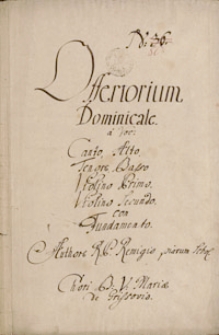 Offertorium
Dominicale.
à Voci
Canto, Alto
Tenore, Basso
Violino Primo,
Violino Secundo,
con
Fundamento.
Authore R. P. Remigio
Chori B. V. Mariæ